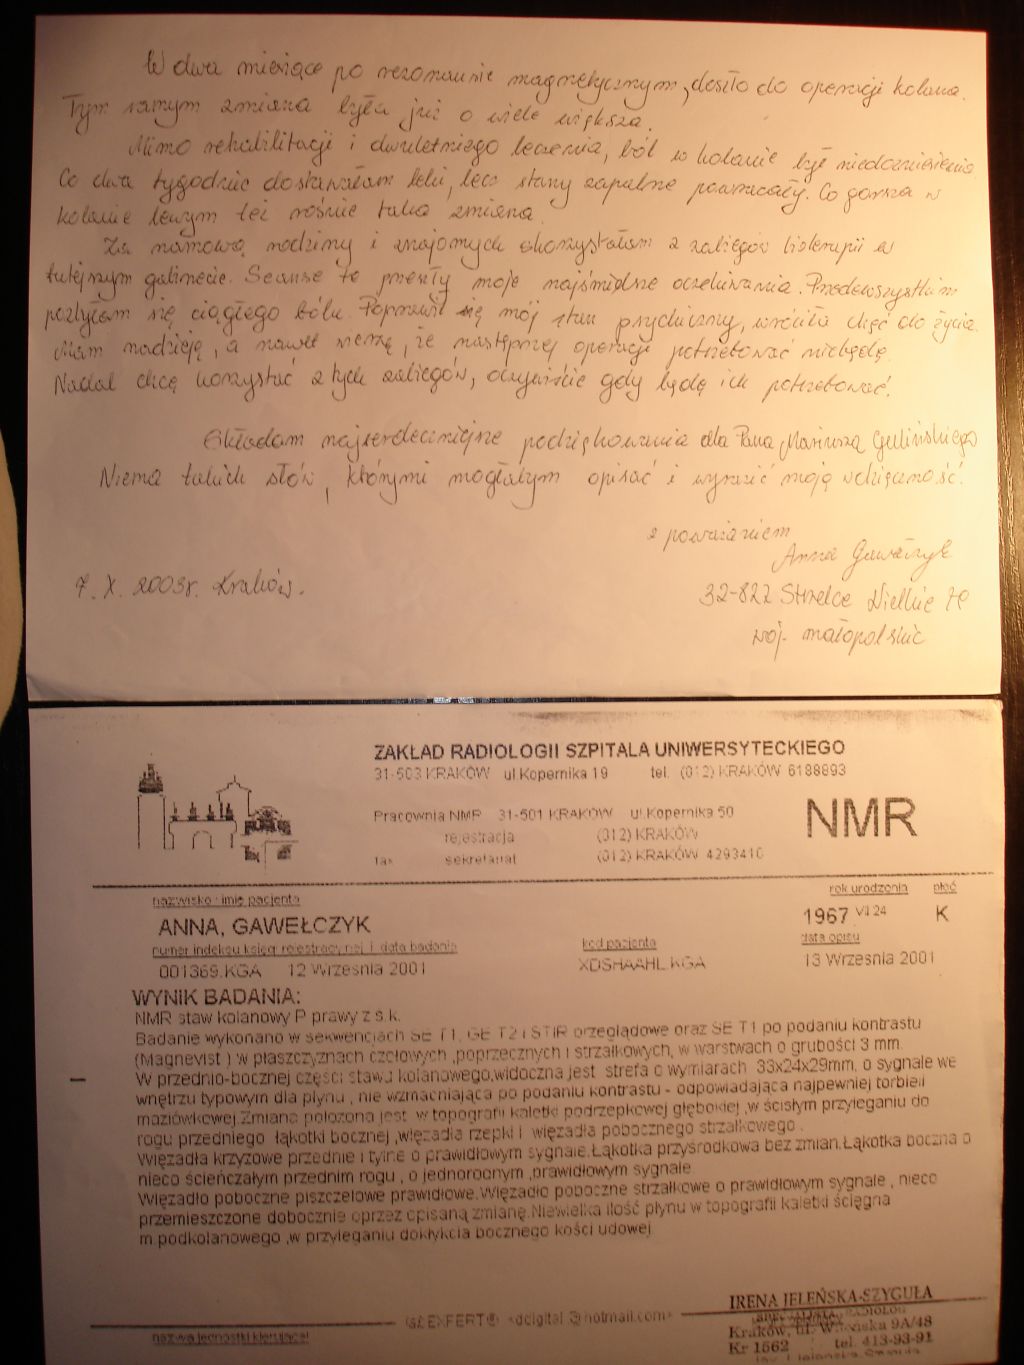 W dwa miesiące po rezonansie magnetycznym, doszło do operacji kolana.
Tym samym zmiana była już o wiele większa.
Mimo rehabilitacji i dwuletniego leczenia, ból w kolanie był niedozniesienia
Co dwa tygodnie dostawałam leki, lecz stany zapalne powracały. Co gorsza w
kolanie lewym też rośnie taka zmiana.
Za namową rodziny i znajomych skorzystałam z zabiegów bioterapii w
tutejszym gabinecie. Seanse te przeszły moje najśmielsze oczekiwania. Przedewszystkim
pozbyłam się ciągłego bólu. Poprawił się mój stan psychiczny, wróciła chęć do życia.
Mam nadzieję, a nawet wierzę, że następnej operacji potrzebować niebędę.
Nadal chcę korzystać z tych zabiegów, oczywiście gdy będę ich potrzebować.
Składam najserdeczniejsze podziękowania dla Pana Mariusza
Niema takich słów, którymi mogłabym opisać i wyrazić moją wdzięczność.
z poważaniem
Anna Gawełczyk
7. X. 2003r. Kraków.
32-822 Strzelce Wielkie
woj. małopolskie
ZAKŁAD RADIOLOGII SZPITALA UNIWERSYTECKIEGO
31-503 KRAKÓW ul Kopernika 19 tel. (012) KRAKÓW 6188893
Pracownia NMR 31-501 KRAKÓW ul Kopernika 50
NMR
rejestracja (012) KRAKÓW
fax sekretariat (012) KRAKÓW 4293410
nazwisko i imię pacjenta rok urodzenia płeć
ANNA, GAWEŁCZYK 1967 VII 24 K
numer indeksu księgi rejestracyjnej i data badania kod pacjenta data opisu
001369.KGA 12 Września 2001 XDSHAAHL.KGA 13 Września 2001
WYNIK BADANIA:
NMR staw kolanowy P prawy z ś.k.
Badanie wykonano w sekwencjach SE T1, GE T2 i STIR przeglądowe oraz SE T1 po podaniu kontrastu
(Magnevist ) w płaszczyznach czołowych ,poprzecznych i strzałkowych, w warstwach o grubości 3 mm.
W przednio-bocznej części stawu kolanowego,widoczna jest strefa o wymiarach 33x24x29mm, o sygnale we
wnętrzu typowym dla płynu , nie wzmacniająca po podaniu kontrastu - odpowiadająca najpewniej torbieli
maziówkowej.Zmiana położona jest w topografii kaletki podrzepkowej głębokiej ,w ścisłym przyleganiu do
rogu przedniego łąkotki bocznej ,więzadła rzepki i więzadła pobocznego strzałkowego .
Więzadła krzyżowe przednie i tylne o prawidłowym sygnale.Łąkotka przyśrodkowa bez zmian.Łąkotka boczna o
nieco ścieńczałym przednim rogu , o jednorodnym ,prawidłowym sygnale
Więzadło poboczne piszczelowe prawidłowe.Więzadło poboczne strzałkowe o prawidłowym sygnale , nieco
przemieszczone dobocznie oprzez opisaną zmianę.Niewielka ilość płynu w topografii kaletki ścięgna
m.podkolanowego ,w przyleganiu dokłykcia bocznego kości udowej
IRENA JELEŃSKA-SZYGUŁA
<dcigital @hotmail.com>
nazwa jednostki kierującej
Kraków, ul. 9A/48
Kr 1562 tel. 413-93-91